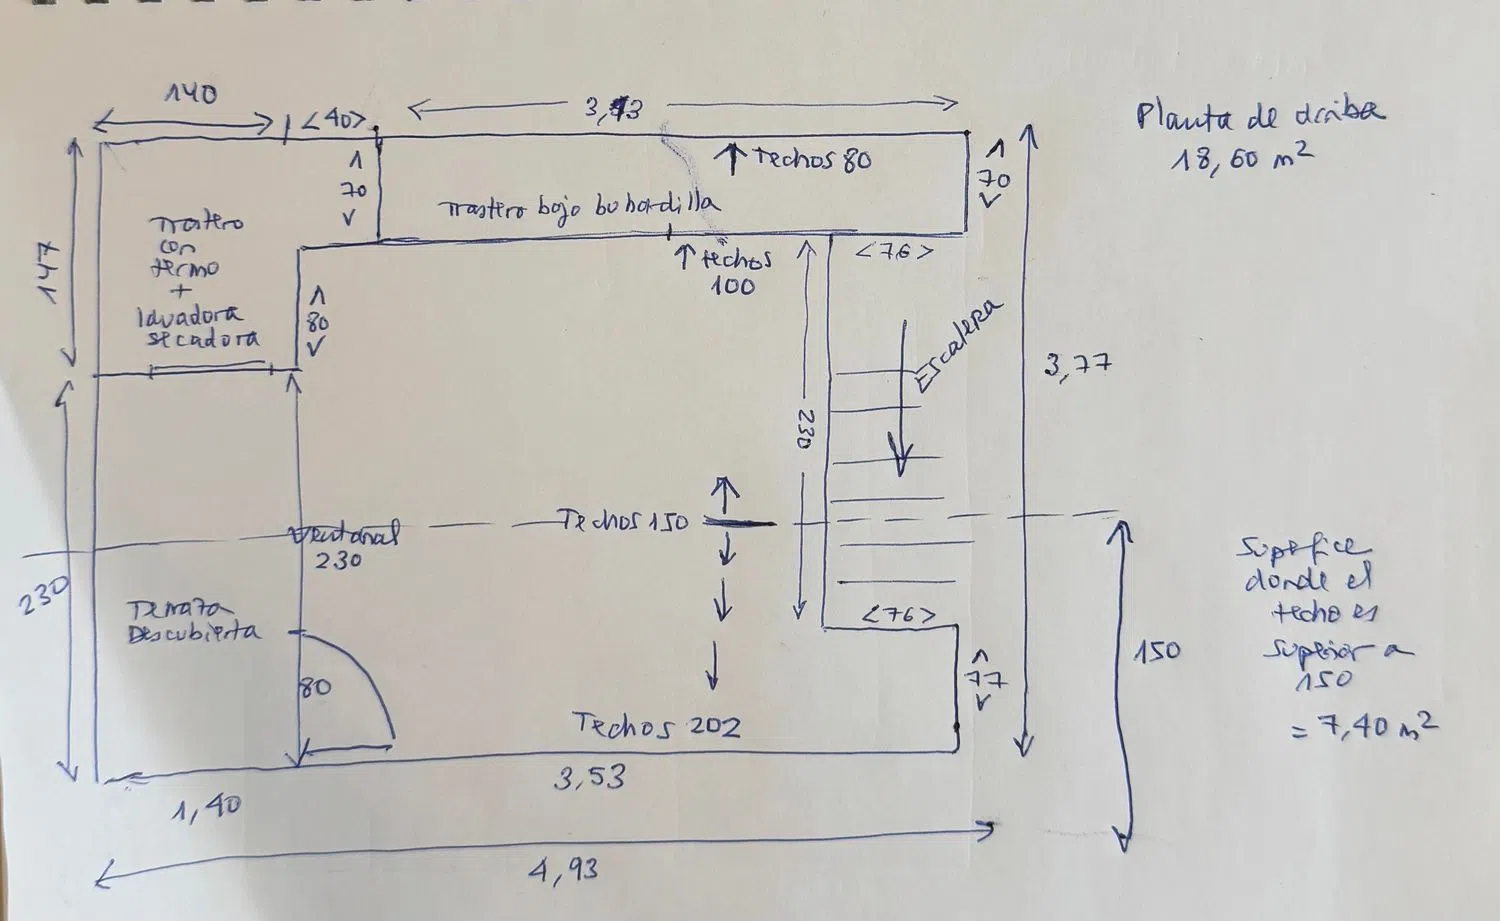 140
<40>
3,13
Planta de arriba
18,60 m²
70
↑ Techos 80
70
Trastero bajo buhardilla
Trastero
con
termo
+
lavadora
secadora
147
80
↑ techos
100
<76>
Escalera
3,77
230
Techos 150
Ventanal
230
230
Terraza
Descubierta
80
<76>
77
Techos 202
150
Superfice
donde el
techo es
superior a
150
= 7,40 m²
1,40
3,53
4,93